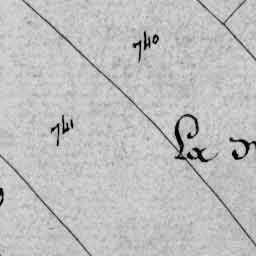 740
741
La